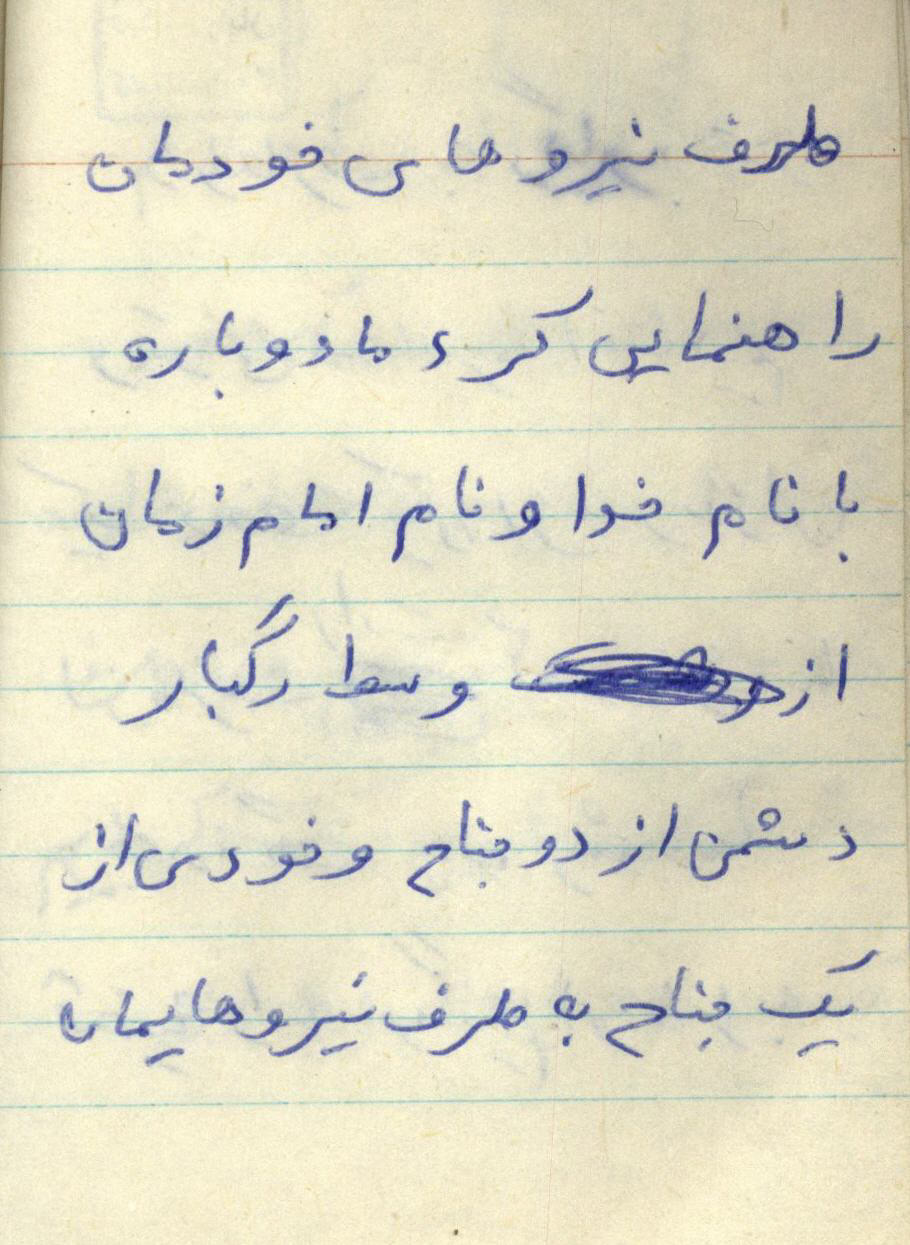 طرف نیروهای خودمان
راهنمایی کرد ما دوباره
با نام خدا و نام امام زمان
از وسط رگبار
دشمن از دو جناح و خودی از
یک جناح به طرف نیروهایمان